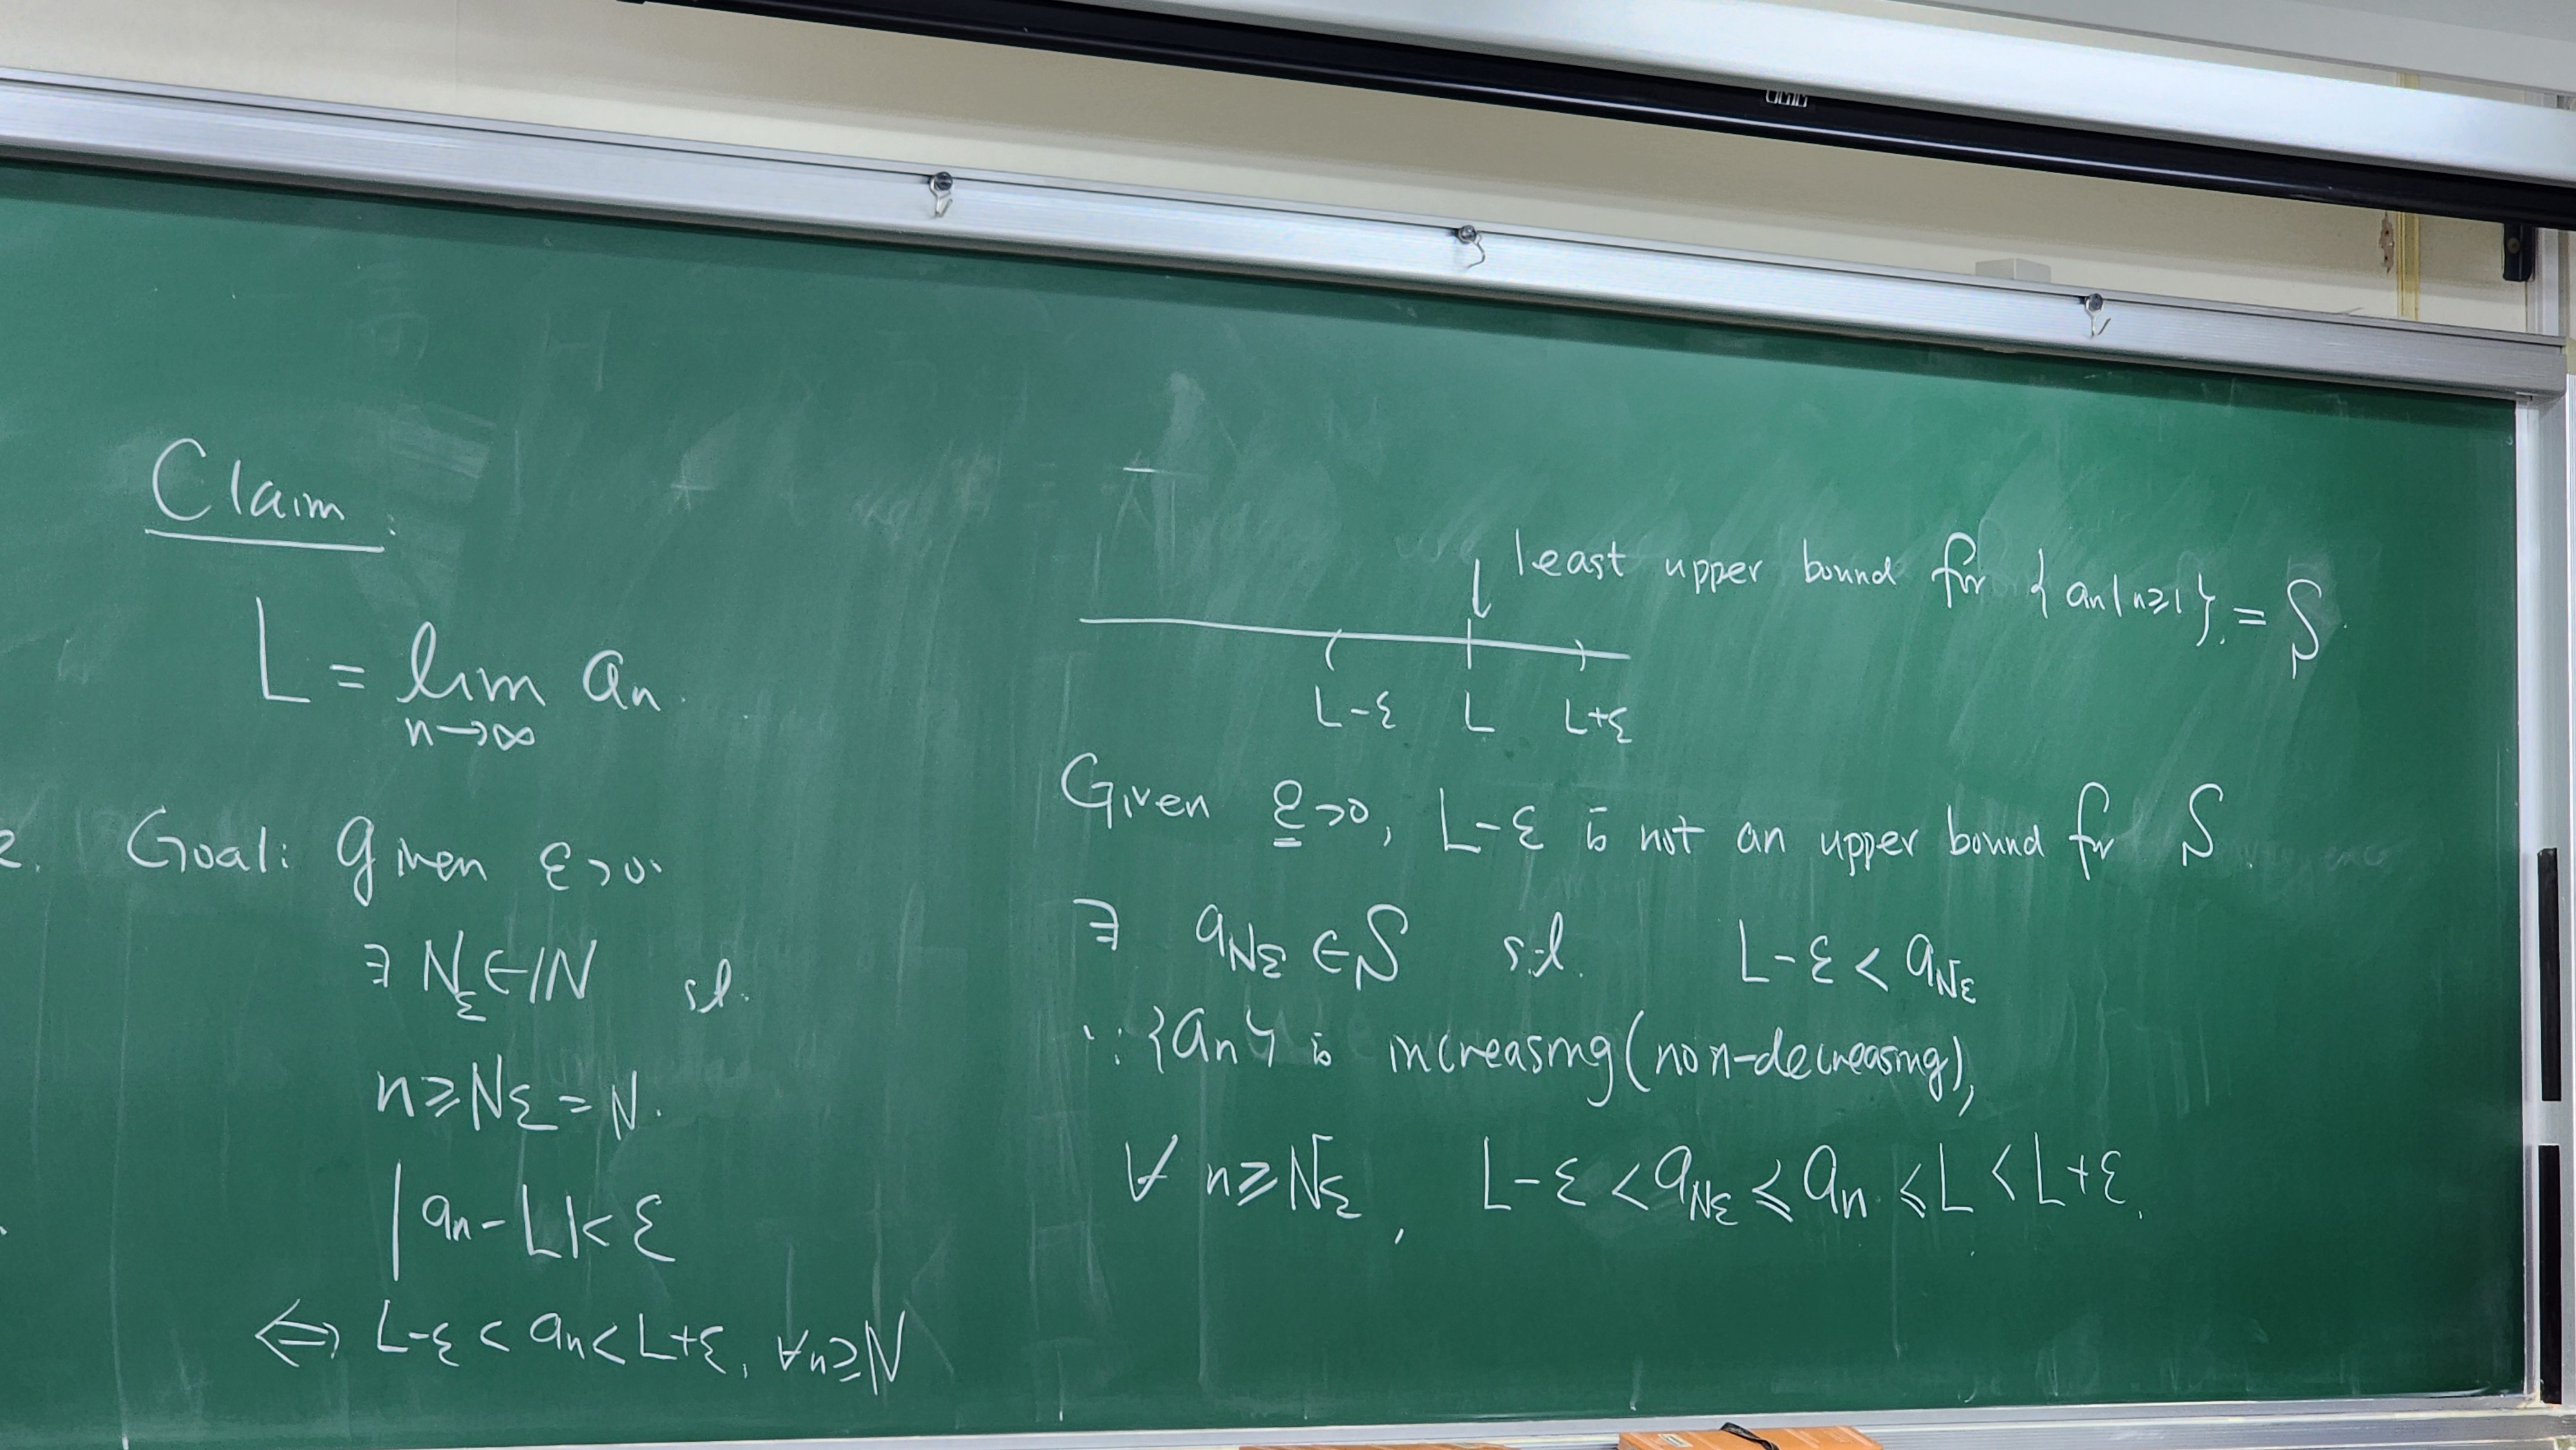 Claim:
L = lim a_n.
n→∞
Goal: given ε>0.
∃ N_ε ∈ ℕ s.t.
n ≥ N_ε = N.
|a_n - L| < ε
⇔ L-ε < a_n < L+ε, ∀n ≥ N
least upper bound for {a_n | n≥1}. = S.
L-ε L L+ε
Given ε>0, L-ε is not an upper bound for S.
∃ a_{N_ε} ∈ S s.t. L-ε < a_{N_ε}
∵ {a_n} is increasing (non-decreasing),
∀ n ≥ N_ε, L-ε < a_{N_ε} ≤ a_n ≤ L < L+ε.